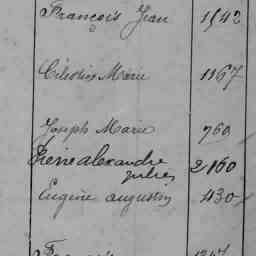 François Jean 1542
Célestin Marie 1167
Joseph Marie 760
Pierre alexandre 2160
jules
Eugène augustin 430